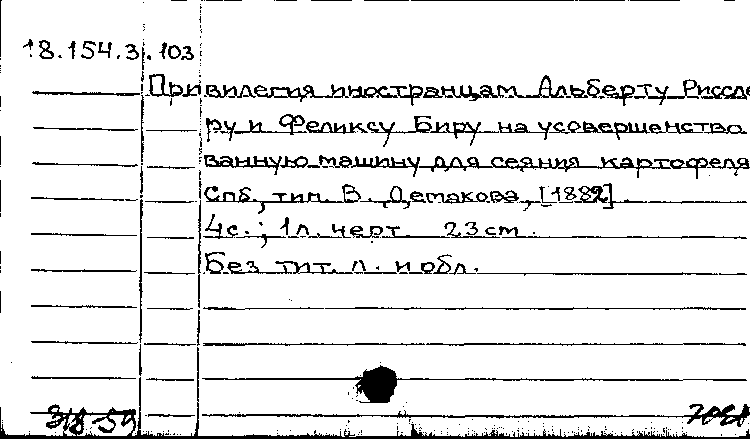 18.154.3.103
Привилегия иностранцам Альберту Риссле
ру и Феликсу Биру на усовершенство
ванную машину для сеяния картофеля
Спб., тип. В. Демакова, [1882].
4с.; 1л. черт. 23 см.
Без тит. л. и обл.
318-59